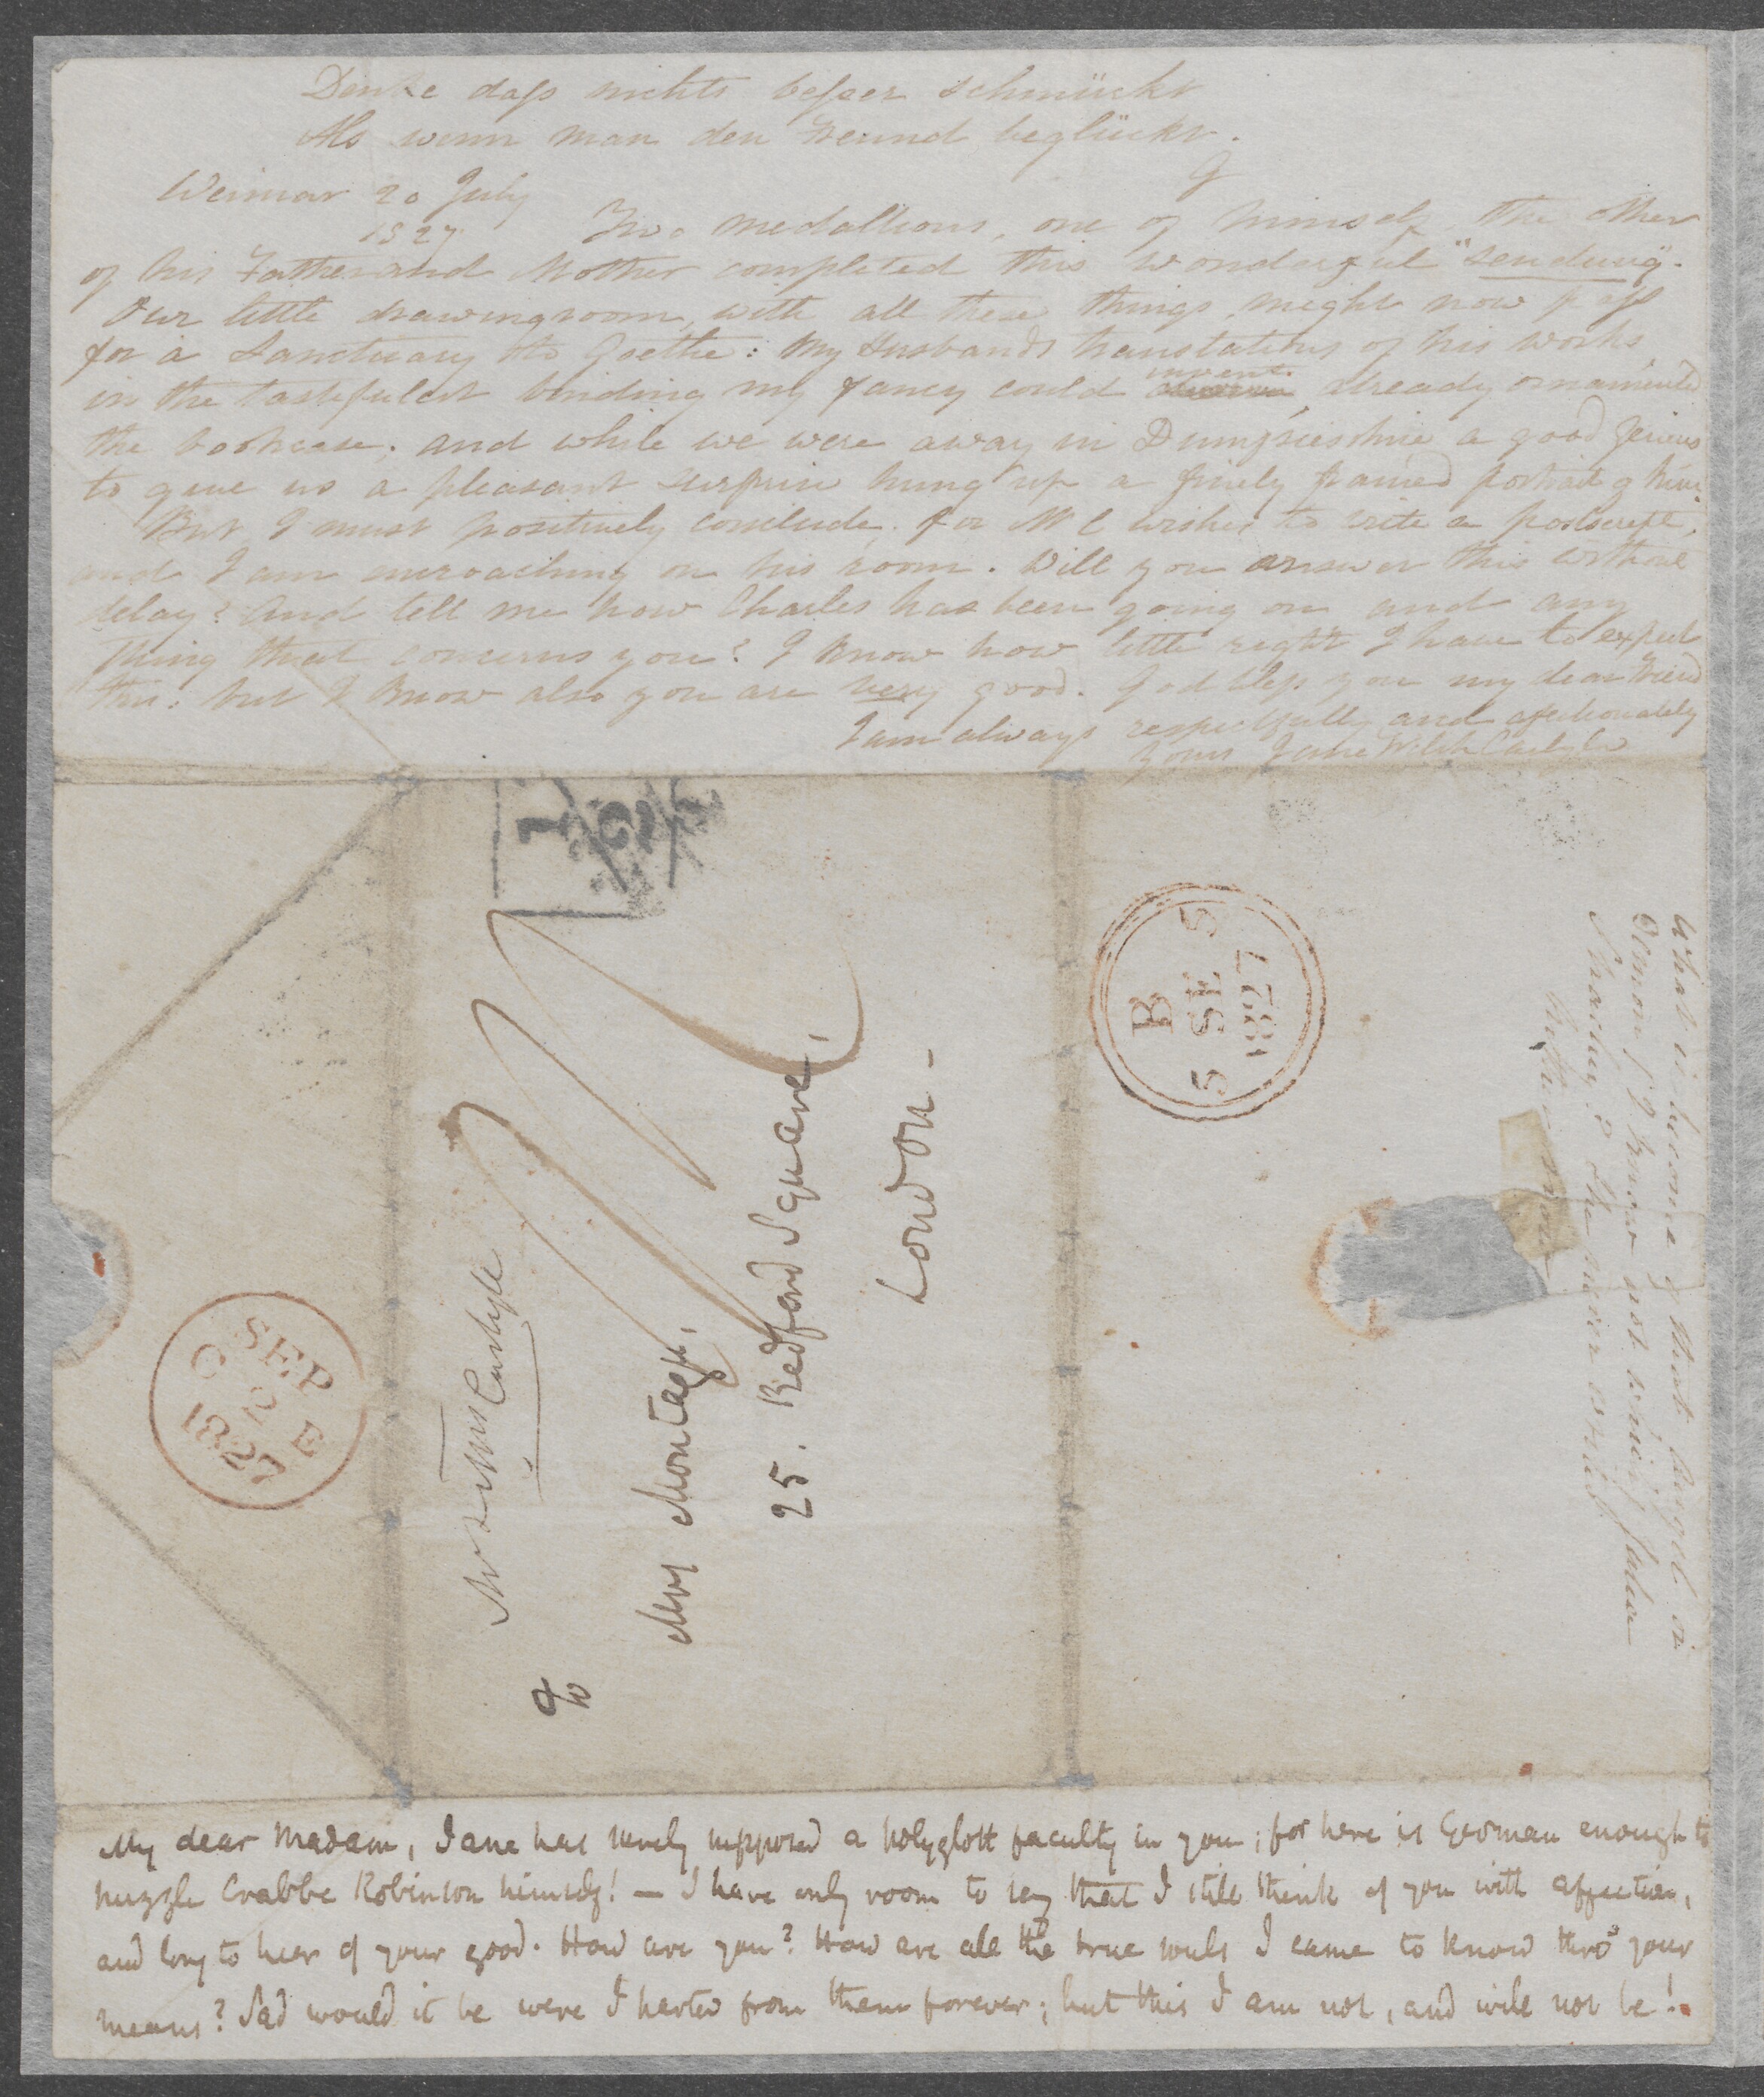 Denke daſs nichts beſser schmückt
Als wenn man den Freund beglückt.
G
Weimar 20 July
1827
Two medallions, one of himself, the other
of his Father and Mother completed this wonderful "sendung".
Our little drawingroom, with all these things, might now pass
for a Sanctuary to Goethe: My Husbands translations of his works,
in the tastefulest binding my fancy could invent, already ornamented
the bookcase; and while we were away in Dumfriesshire a good Genius
to give us a pleasant surprise hung up a finely framed portrait of him.
But I must positively conclude, for Mr C wishes to write a postscript,
and I am encroaching on his room. Will you answer this without
delay? And tell me how Charles has been going on and any
thing that concerns you? I know how little right I have to expect
this: but I know also you are very good. God bless you my dear Friend
I am always respectfully and affectionately
yours Jane Welsh Carlyle
What is become of that Angel in
I know not which
Strachey? She never
B
5 SE 5
1827
Mr & Mrs Carlyle
Mrs Montagu,
25. Bedford Square,
London-
SEP
2
1827
My dear Madam, Jane has surely supposed a polyglott faculty in you; for here is German enough to
puzzle Crabbe Robinson himself! — I have only room to say that I still think of you with affection,
and long to hear of your good. How are you? How are all the true souls I came to know thro' your
means? Sad would it be were I parted from them forever; but this I am not, and will not be!